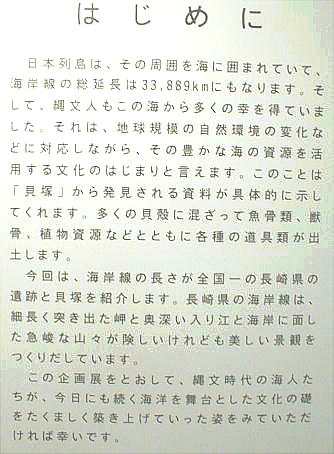 はじめに
日本列島は、その周囲を海に囲まれていて、
海岸線の総延長は33,889kmにもなります。そ
して、縄文人もこの海から多くの幸を得ていま
した。それは、地球規模の自然環境の変化な
どに対応しながら、その豊かな海の資源を活
用する文化のはじまりと言えます。このことは
「貝塚」から発見される資料が具体的に示し
てくれます。多くの貝殻に混ざって魚骨類、獣
骨、植物資源などとともに各種の道具類が出
土します。
今回は、海岸線の長さが全国一の長崎県の
遺跡と貝塚を紹介します。長崎県の海岸線は、
細長く突き出た岬と奥深い入り江と海岸に面し
た急峻な山々が険しいけれども美しい景観を
つくりだしています。
この企画展をとおして、縄文時代の海人た
ちが、今日にも続く海洋を舞台とした文化の礎
をたくましく築き上げていった姿をみていただ
ければ幸いです。